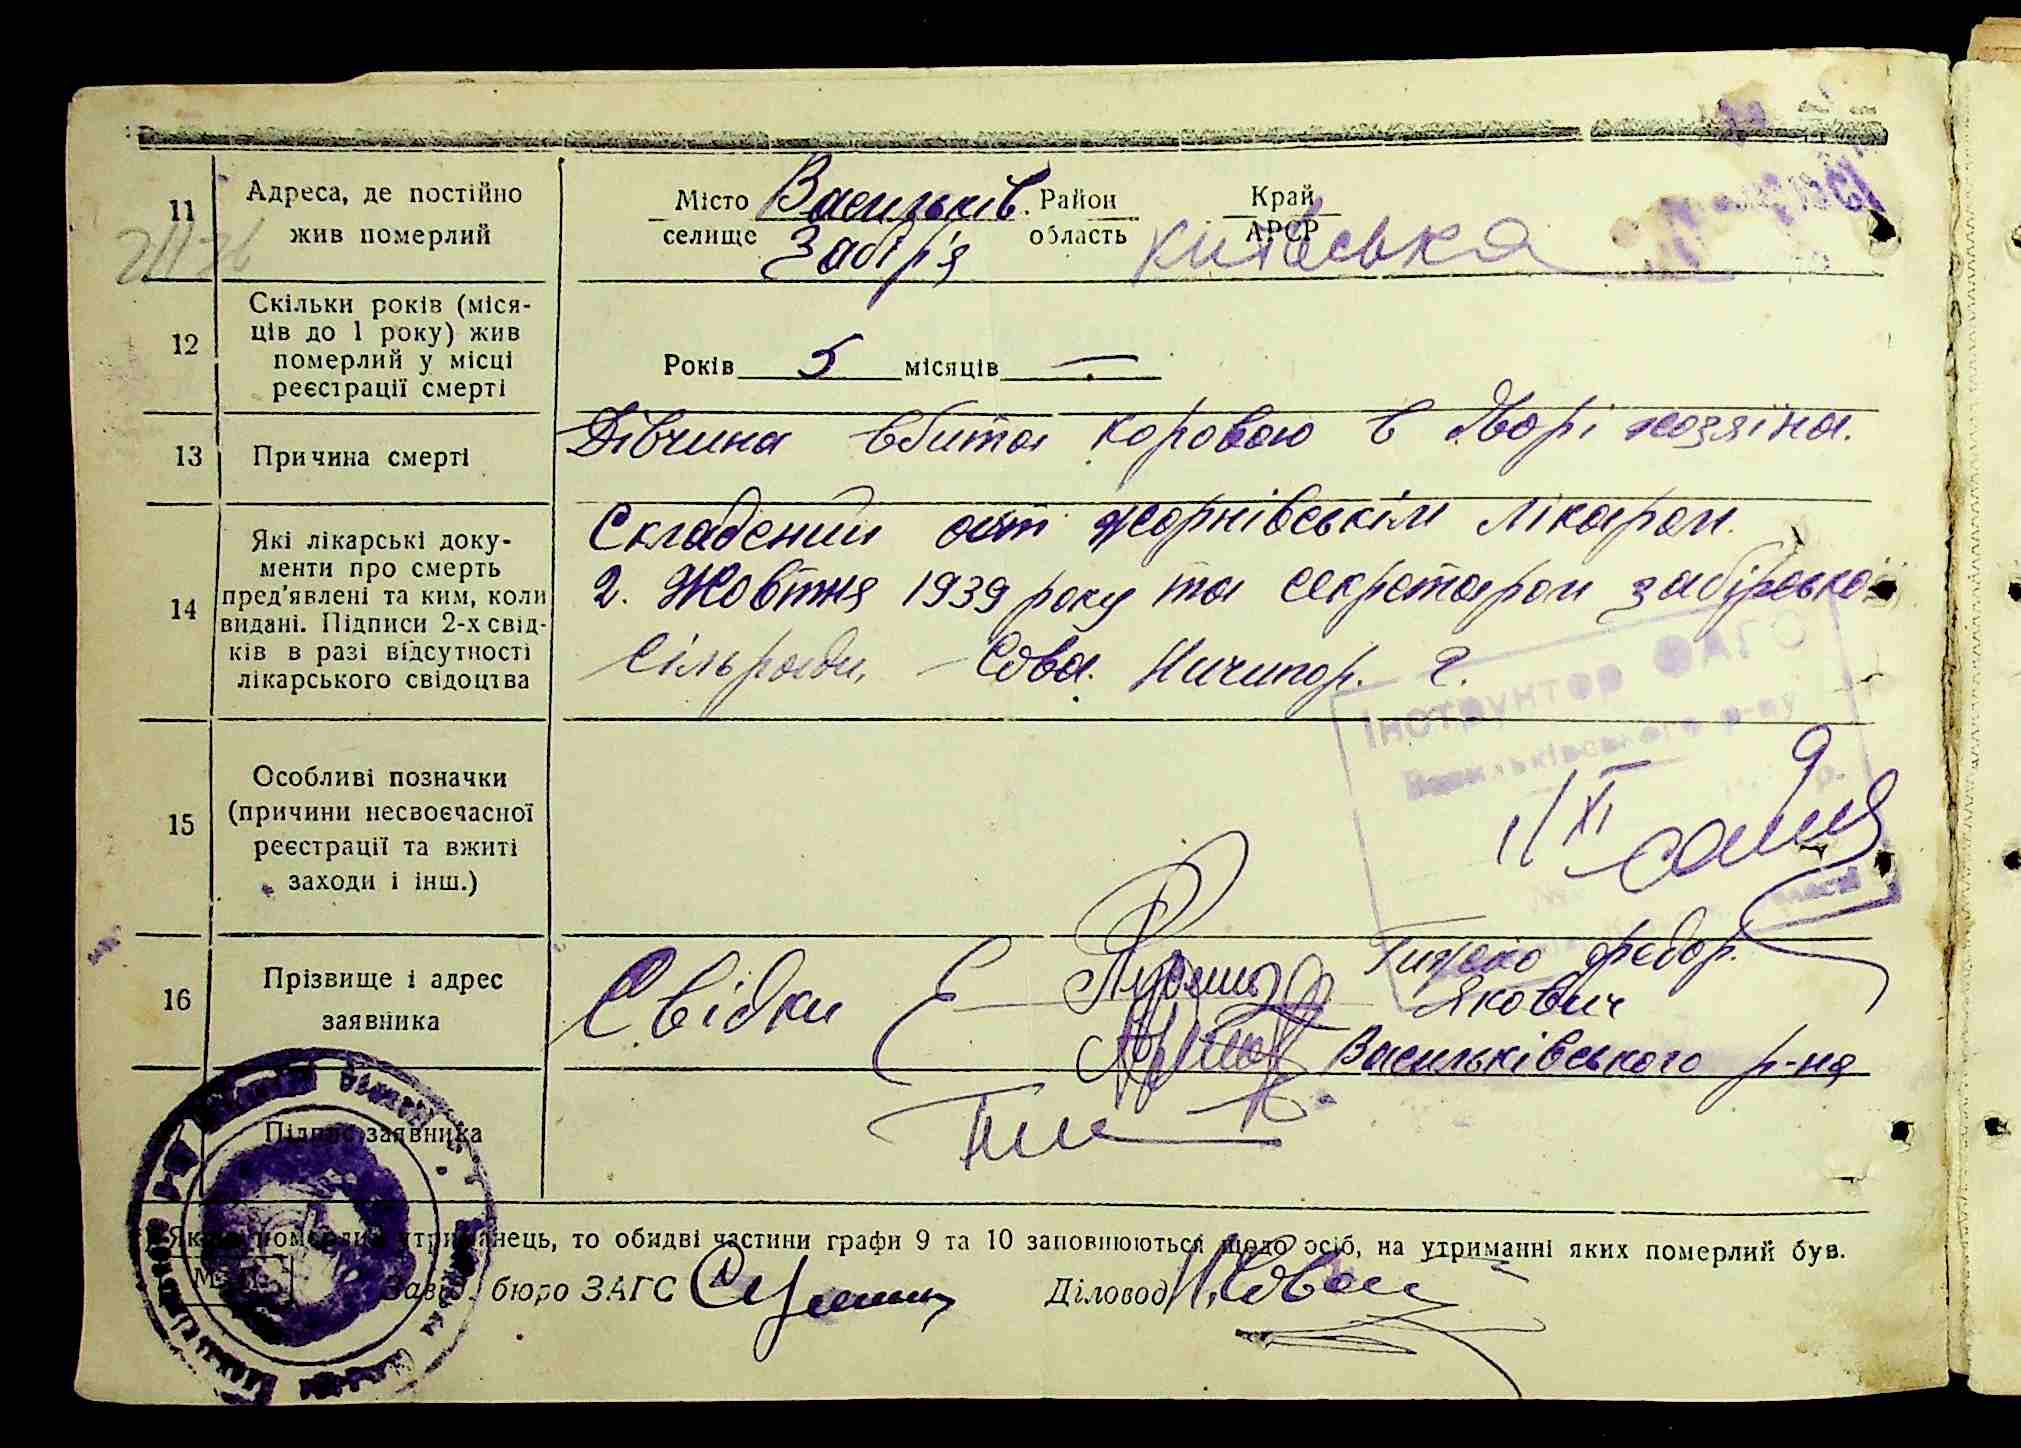 11 Адреса, де постійно
жив померлий
Місто Васильків. Район Край
селище Забір'я область АРСР Київська
12 Скільки років (міся-
ців до 1 року) жив
померлий у місці
реєстрації смерті
Років 5 місяців —
13 Причина смерті
Дівчина вбита коровою в дворі хозяїна.
14 Які лікарські доку-
менти про смерть
пред'явлені та ким, коли
видані. Підписи 2-х свід-
ків в разі відсутності
лікарського свідоцтва
Складений акт Жорнівськім лікаром.
2. Жовтня 1939 року та секретаром забірської
сільради, Сова. Ничипор. Г.
Інструктор ЗАГС
Васильківського р-ну
15 Особливі позначки
(причини несвоєчасної
реєстрації та вжиті
заходи і інш.)
1/XI
16 Прізвище і адрес
заявника
Свідки Федор.
Якович
Васильківського р-на
Підпис заявника
Якщо померлий утриманець, то обидві частини графи 9 та 10 заповнюються щодо осіб, на утриманні яких померлий був.
М. П.
Завід. бюро ЗАГС Діловод Н. Сова